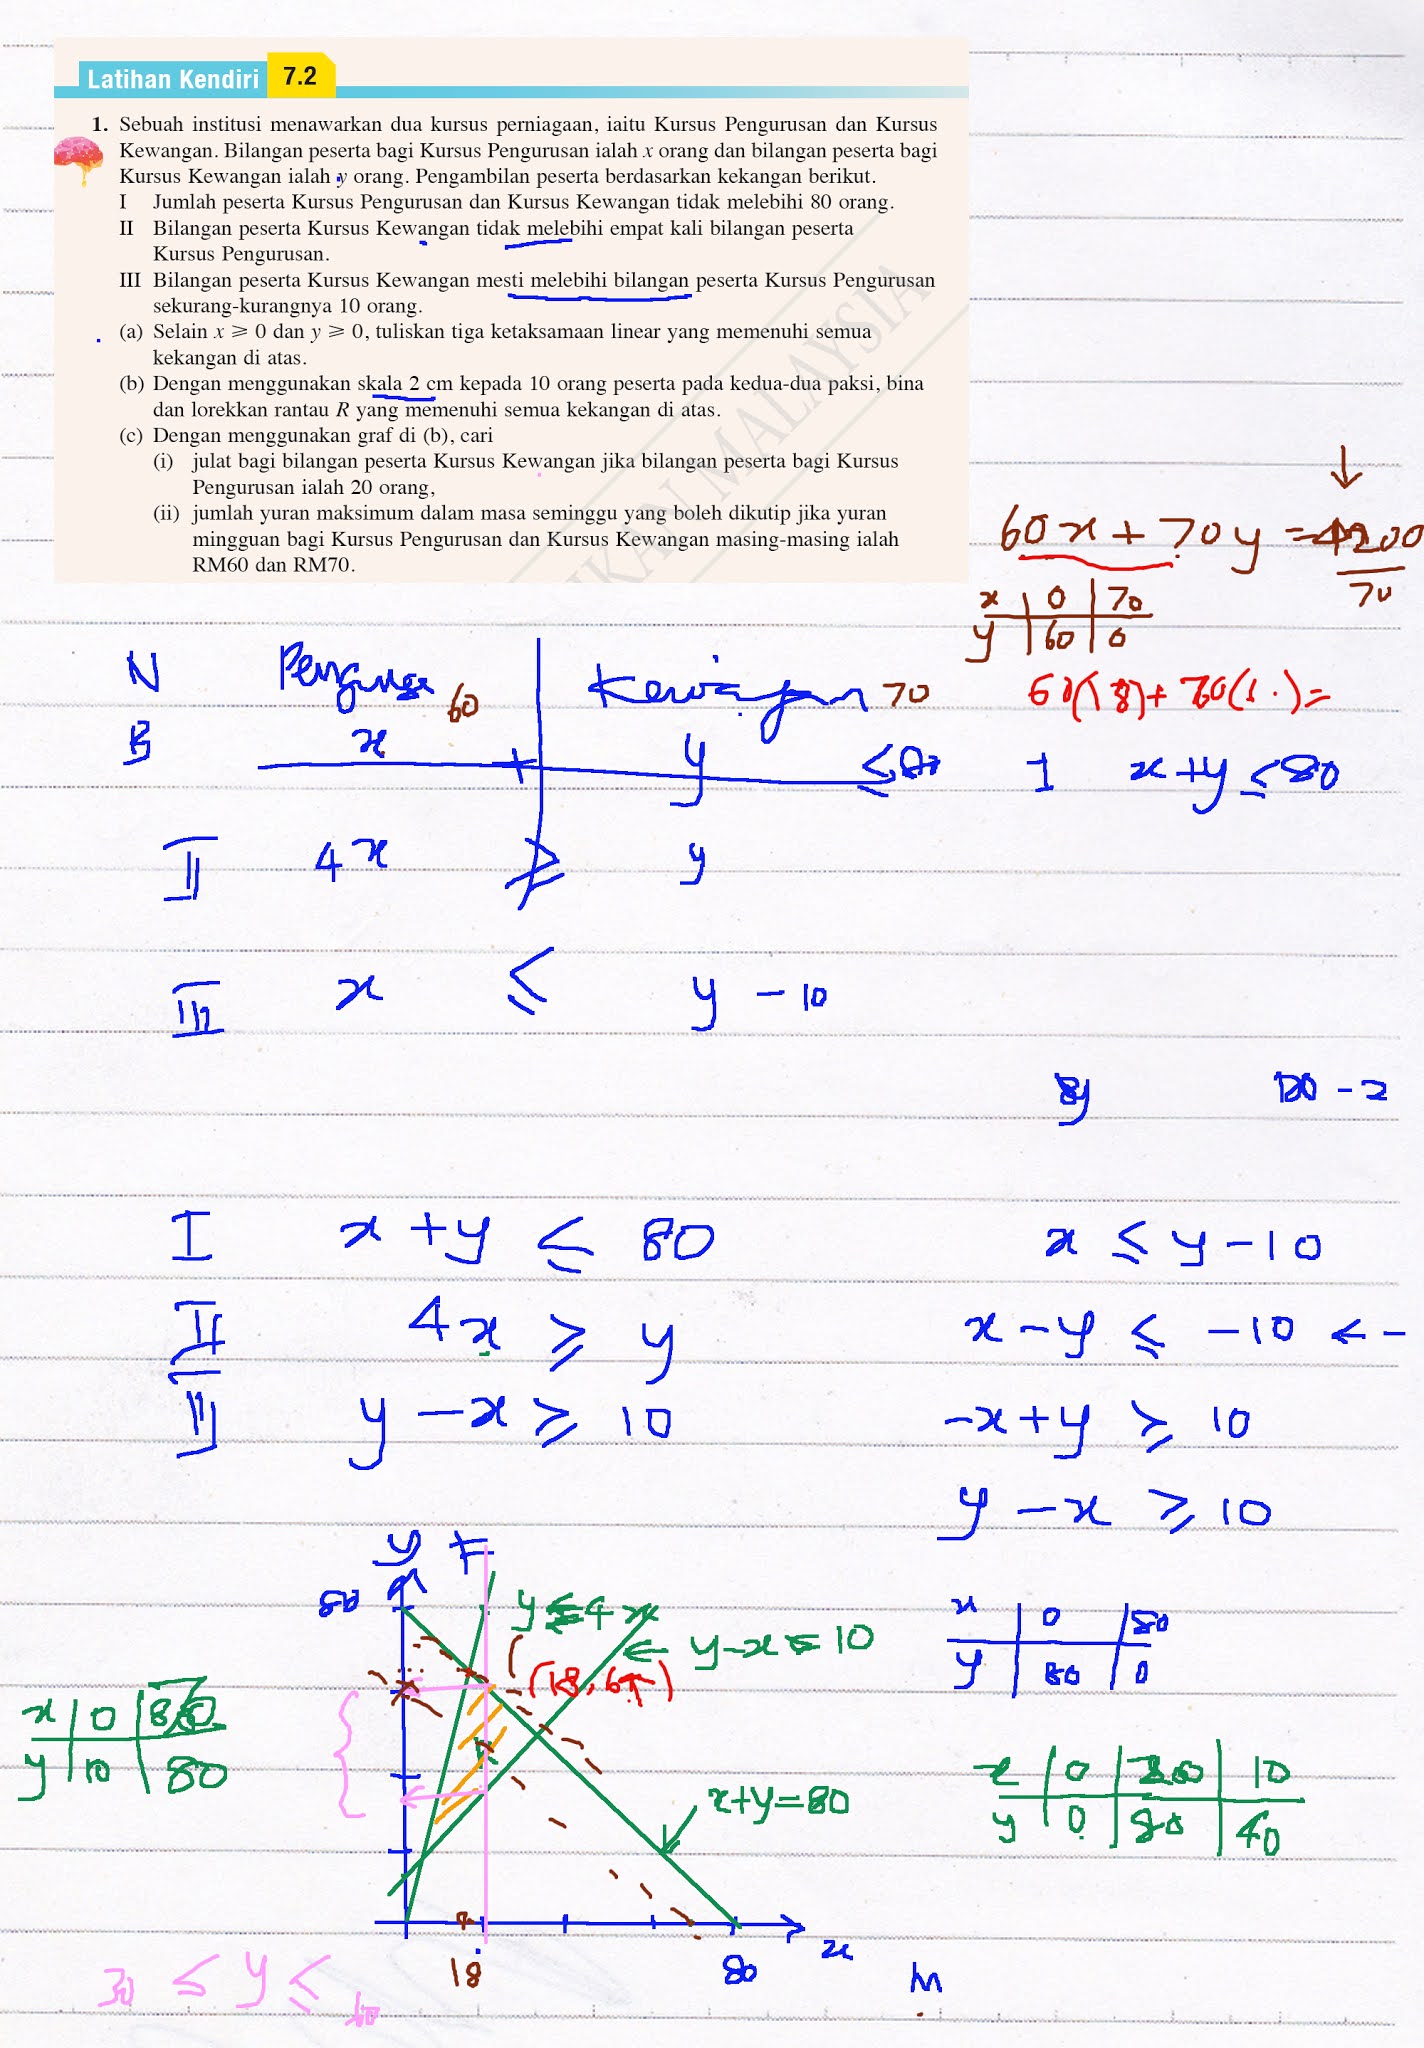 Latihan Kendiri 7.2
1. Sebuah institusi menawarkan dua kursus perniagaan, iaitu Kursus Pengurusan dan Kursus
Kewangan. Bilangan peserta bagi Kursus Pengurusan ialah x orang dan bilangan peserta bagi
Kursus Kewangan ialah y orang. Pengambilan peserta berdasarkan kekangan berikut.
I Jumlah peserta Kursus Pengurusan dan Kursus Kewangan tidak melebihi 80 orang.
II Bilangan peserta Kursus Kewangan tidak melebihi empat kali bilangan peserta
Kursus Pengurusan.
III Bilangan peserta Kursus Kewangan mesti melebihi bilangan peserta Kursus Pengurusan
sekurang-kurangnya 10 orang.
(a) Selain x ⩾ 0 dan y ⩾ 0, tuliskan tiga ketaksamaan linear yang memenuhi semua
kekangan di atas.
(b) Dengan menggunakan skala 2 cm kepada 10 orang peserta pada kedua-dua paksi, bina
dan lorekkan rantau R yang memenuhi semua kekangan di atas.
(c) Dengan menggunakan graf di (b), cari
(i) julat bagi bilangan peserta Kursus Kewangan jika bilangan peserta bagi Kursus
Pengurusan ialah 20 orang,
(ii) jumlah yuran maksimum dalam masa seminggu yang boleh dikutip jika yuran
mingguan bagi Kursus Pengurusan dan Kursus Kewangan masing-masing ialah
RM60 dan RM70.
IKAN MALAYSIA
60x + 70y = 4200
70
x 0 70
y 60 0
N Kewangan 70
60
B x + y
I x + y ≤ 80
II 4x ≥ y
III x ≤ y - 10
I x + y ≤ 80 x ≤ y - 10
II 4x ≥ y x - y ≤ -10 ← -
y - x ≥ 10 -x + y ≥ 10
y - x ≥ 10
y
80
y - x = 10
x 0 80
y 80 0
x 0
y 10 80
x 0 10
y 0 80 40
x+y=80
18 80 x
30 ≤ y ≤ 60